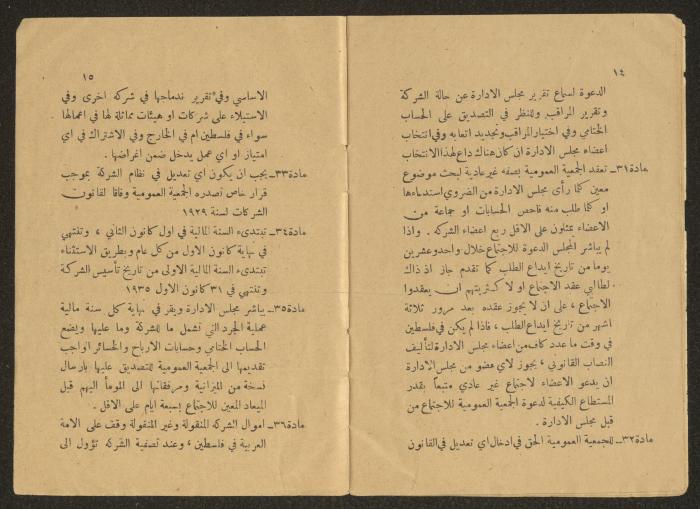 ١٤
الدعوة لسماع تقرير مجلس الادارة عن حالة الشركة
وتقرير المراقب وللنظر في التصديق على الحساب
الختامي وفي اختيار المراقب وتحديد اتعابه وفي انتخاب
اعضاء مجلس الادارة ان كان هناك داع لهذا الانتخاب
مادة٣١ـ تعقد الجمعية العمومية بصفه غير عادية لبحث موضوع
معين كلما رأى مجلس الادارة من الضروي استدعاءها
او كما طلب منه فاحص الحسابات او جماعة من
الاعضاء يمثلون على الاقل ربع اعضاء الشركه . واذا
لم يباشر المجلس الدعوة للاجتماع خلال واحد وعشرين
يوما من تاريخ ايداع الطلب كما تقدم جاز اذ ذاك
لطالبي عقد الاجتماع او لاكثريتهم ان يعقدوا
الاجتماع ، على ان لا يجوز عقده بعد مرور ثلاثة
اشهر من تاريخ ايداع الطلب ، فاذا لم يكن في فلسطين
في وقت ما عدد كاف من اعضاء مجلس الادارة لتأليف
النصاب القانوني ، يجوز لاي عضو من مجلس الادارة
ان يدعو الاعضاء لاجتماع غير عادي متبعاً بقدر
المستطاع الكيفية لدعوة الجمعية العمومية للاجتماع من
قبل مجلس الادارة .
مادة٣٢ـ للجمعية العمومية الحق في ادخال اي تعديل في القانون
١٥
الاساسي وفي تقرير ندماجها في شركه اخرى وفي
الاستيلاء على شركات او هيئات مماثلة لها في اعمالها
سواء في فلسطين ام في الخارج وفي الاشتراك في اي
امتياز او اي عمل يدخل ضمن اغراضها .
مادة٣٣ـ يجب ان يكون اي تعديل في نظام الشركة بموجب
قرار خاص تصدره الجمعية العمومية وفاقا لقانون
الشركات لسنة ١٩٢٩
مادة٣٤ـ تبتدىء السنة المالية في اول كانون الثاني ، وتنتهي
في نهاية كانون الاول من كل عام وبطريق الاستثناء
تبتدىء السنة المالية الاولى من تاريخ تأسيس الشركة
وتنتهي في ٣١ كانون الاول ١٩٣٥
مادة٣٥ـ يباشر مجلس الادارة ويقر في نهاية كل سنة مالية
عملية الجرد التي تشمل ما للشركة وما عليها ويضع
الحساب الختامي وحسابات الارباح والخسائر الواجب
تقديمها الى الجمعية العمومية للتصديق عليها بارسال
نسخة من الميزانية ومرفقاتها الى الموما اليهم قبل
الميعاد المعين للاجتماع بسبعة ايام على الاقل .
مادة٣٦ـ اموال الشركه المنقولة وغير المنقولة وقف على الامة
العربية في فلسطين ، وعند تصفية الشركه تؤول الى